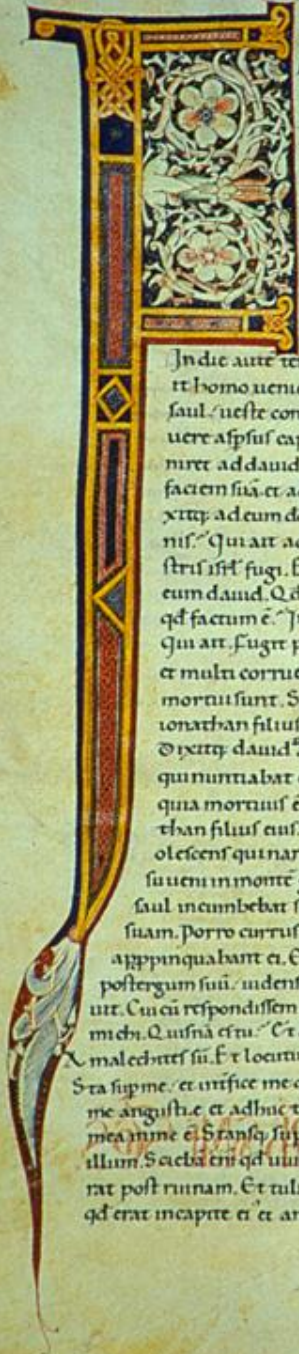 F
In die aute te
tt homo ueni
saul. ueste con
uere aspsus cap
niret ad dauid
faciem suā. et a
xitq; ad eum d
nis. Qui ait a
stris isrl fugi. E
eum dauid. Qd
qd factum ē. I
Qui ait. Fugit p
et multi corrue
mortui sunt. S
ionathan filius
Dixitq; dauid
qui nuntiabat
quia mortuus e
than filius eius.
olescens qui nar
su ueni in montē
saul incumbebat s
suam. Porro currus
appinquabant ei. E
postergum suū. uidens
uit. Cui cū respondissem
michi. Quisnā es tu. Et
Amalechites sū. Et locutu
Sta sup me. et intifice me
me angustie et adhuc t
mea in me ē. Stansq; sup
illum. Sciebā eni qd uiu
rat post ruinam. Et tul
qd erat in capite ei et ar